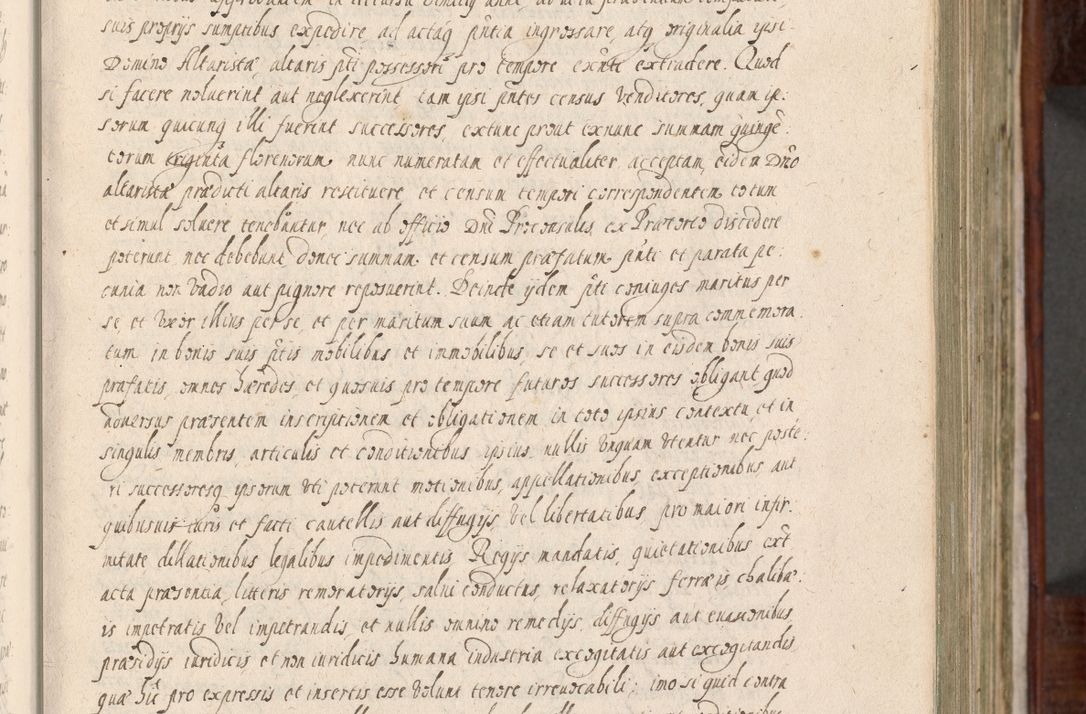 suis proprijs sumptibus expedire ad actaq́ pn̄tia ingrossare, atq originalia ipsi
Domino Altaristæ, altaris pt̄i possessori pro tempore exn̄ti extradere. Quod
si facere noluerint aut neglexerint tam ipsi pn̄tes census venditores, quam ip:
sorum quicunq illi fuerint successores, extunc prout exnunc summam quinge:
torum triginta florenorum nunc numeratam et effectualiter acceptam, eidem Dn̄o
altaristæ prædicti altaris restituere et censum tempori correspondentem totum
et simul soluere tenebuntur, nec ab officio Dn̄i Proconsulis, ex Prætorio discedere
poterunt nec debebunt donec summam et censum præfatum pn̄ti et parata pe:
cunia non vadio aut pignore reposuerint. Deinde ijdem pt̄i coniuges maritus per
se, et vxor illius per se, et per maritum suum ac etiam tutorem supra commemora:
tum in bonis suis pt̄is mobilibus et immobilibus, se et suos in eisdem bonis suis
præfatis, omnes hæredes, et quosuis pro tempore futuros successores obligant quod
aduersus præsentem inscriptionem et obligationem in toto ipsius contextu, et in
singulis membris, articulis et conditionibus ipsius nullis vnquam vtentur nec poste:
ri successoresq ipsorum vti poterunt motionibus, appellationibus, exceptionibus aut
quibusuis iuris et facti cautellis aut diffugijs, vel libertatibus, pro maiori infir:
mitate dillationibus legalibus impedimentis, Regijs mandatis, quietationibus ext̄
acta præsentia, litteris remoratorijs, salui conductus, relaxatorijs ferræis chalibæ:
is impetratis vel impetrandis, et nullis omnino remedijs, diffugijs aut euasionibus,
præsidijs iuridicis et non iuridicis humana industria excogitatis aut excogitandis
quæ hic pro expressis et insertis esse volunt tenore irreuocabili; imo si quid contra